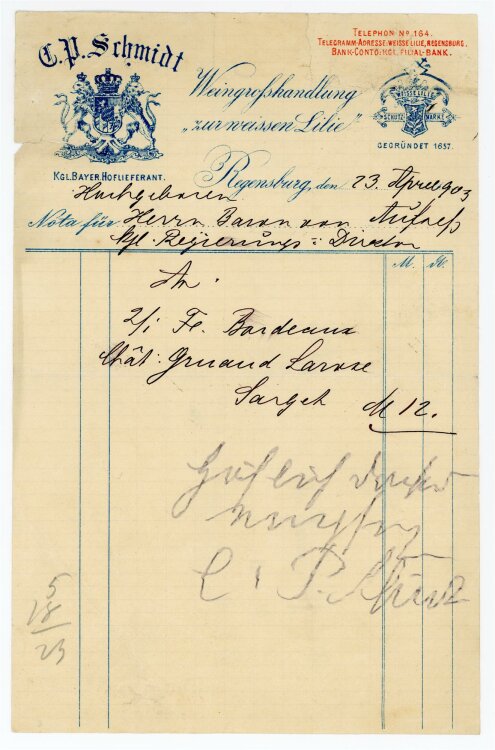 TELEPHON Nº 164.
TELEGRAMM-ADRESSE: WEISSE LILIE, REGENSBURG.
BANK-CONTO: KGL. FILIAL-BANK.
C. P. Schmidt
Weingrosshandlung
„zur weissen Lilie"
WEISSE LILIE
SCHUTZ MARKE
GEGRÜNDET 1657.
KGL. BAYER. HOFLIEFERANT.
Regensburg, den 23. April 903
Hochgeboren
Nota für Herrn Baron von Aufsess
kgl. Regierungs = Direktor
M. Pf.
An.
2/1 Fl. Bordeaux
Chât. Gruaud Larose
Sarget M 12.
C. P. Schmidt
5
18
23